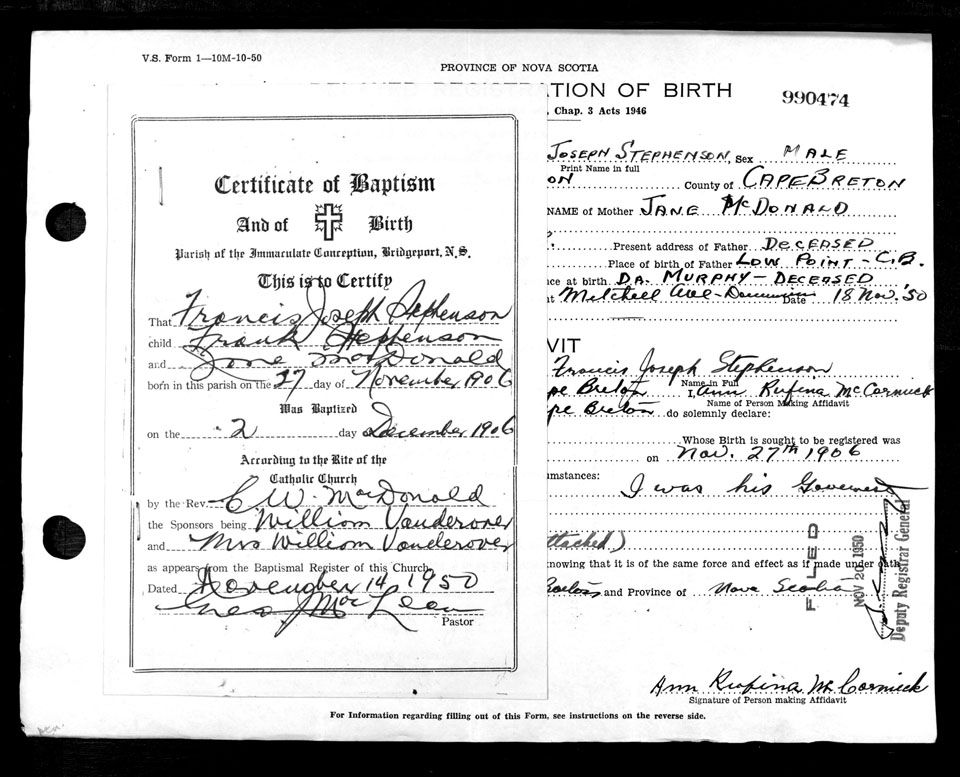 V.S. Form 1—10M-10-50
PROVINCE OF NOVA SCOTIA
TION OF BIRTH
990474
, Chap. 3 Acts 1946
Certificate of Baptism
And of Birth
Parish of the Immaculate Conception, Bridgeport, N.S.
This is to Certify
That Francis Joseph Stephenson
child Frank Stephenson
and Jane MacDonald
born in this parish on the 27 day of November 1906
Was Baptized
on the 2 day December 1906
According to the Rite of the
Catholic Church
by the Rev. C W. MacDonald
the Sponsors being William Vanderover
and Mrs William Vanderover
as appears from the Baptismal Register of this Church.
Dated November 14 1950
Geo J MacLean
Pastor
JOSEPH STEPHENSON, Sex MALE
Print Name in full
ON County of CAPE BRETON
NAME of Mother JANE McDONALD
Present address of Father DECEASED
Place of birth of Father LOW POINT - C.B.
nce at birth DR. MURPHY - DECEASED
at Mitchell Ave - Dominion Date 18 Nov. '50
VIT
Francis Joseph Stephenson
Name in Full
pe Breton I, Ann Rufina McCormick
Name of Person Making Affidavit
pe Breton do solemnly declare:
Whose Birth is sought to be registered was
on Nov. 27th 1906
umstances: I was his
ttached)
nowing that it is of the same force and effect as if made under oath
Breton and Province of Nova Scotia
FILED
NOV 20 1950
Deputy Registrar General
Ann Rufina McCormick
Signature of Person making Affidavit
For Information regarding filling out of this Form, see instructions on the reverse side.